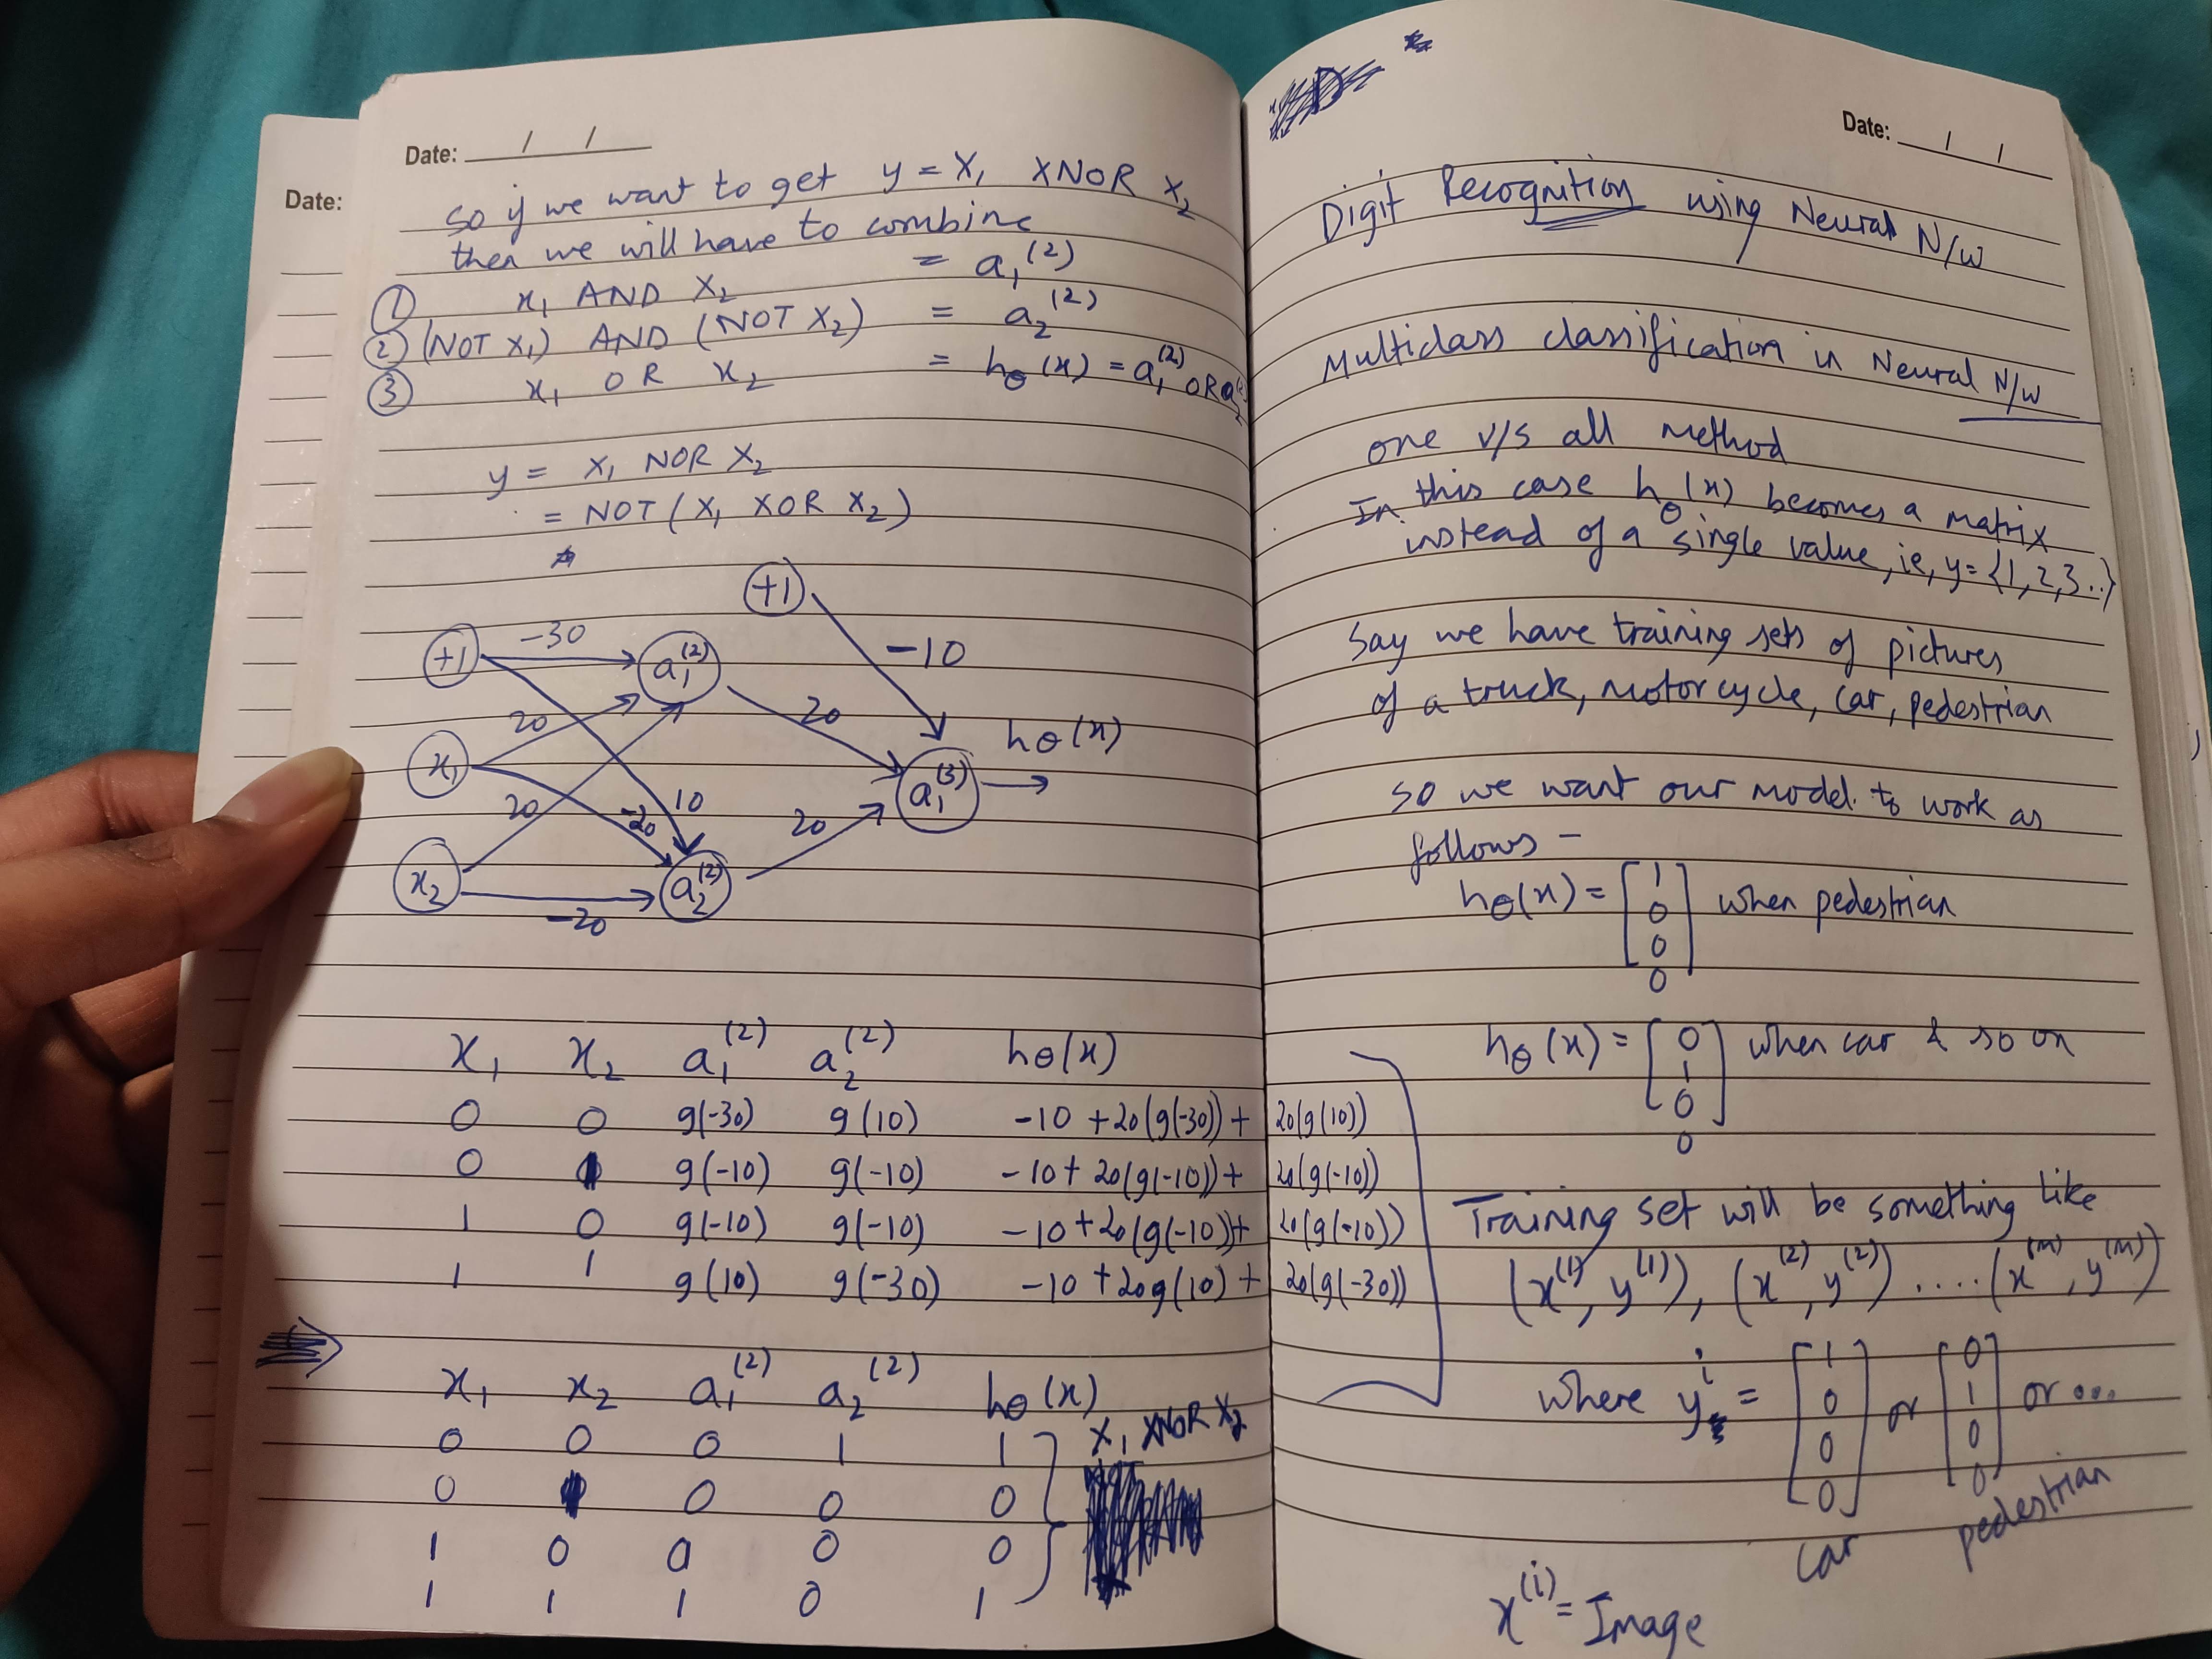 Date:
Date: __/__/__
so if we want to get y = X₁ XNOR X₂
then we will have to combine
① x₁ AND X₂ = a₁⁽²⁾
② (NOT X₁) AND (NOT X₂) = a₂⁽²⁾
③ x₁ OR x₂ = hθ(x) = a₁⁽²⁾ OR a₂⁽²⁾
y = X₁ NOR X₂
= NOT (X₁ XOR X₂)
+1
+1 -30 a₁⁽²⁾ -10
20 20 hθ(x)
x₁ a₁⁽³⁾
20 -20 10 20
x₂ a₂⁽²⁾
-20
x₁ x₂ a₁⁽²⁾ a₂⁽²⁾ hθ(x)
0 0 g(-30) g(10) -10 + 20(g(-30)) + 20(g(10))
0 1 g(-10) g(-10) -10 + 20(g(-10)) + 20(g(-10))
1 0 g(-10) g(-10) -10 + 20(g(-10)) + 20(g(-10))
1 1 g(10) g(-30) -10 + 20g(10) + 20(g(-30))
x₁ x₂ a₁⁽²⁾ a₂⁽²⁾ hθ(x)
0 0 0 1 1 X₁ XNOR X₂
0 1 0 0 0
1 0 0 0 0
1 1 1 0 1
Date: __/__/__
Digit Recognition using Neural N/W
Multiclass classification in Neural N/W
one v/s all method
In this case hθ(x) becomes a matrix
instead of a single value, ie, y = {1,2,3..}
Say we have training sets of pictures
of a truck, motorcycle, car, pedestrian
so we want our model to work as
follows -
hθ(x) = [1 0 0 0] when pedestrian
hθ(x) = [0 1 0 0] when car & so on
Training set will be something like
(x⁽¹⁾, y⁽¹⁾), (x⁽²⁾, y⁽²⁾) .... (x⁽ᵐ⁾, y⁽ᵐ⁾)
where yⁱ = [1 0 0 0] or [0 1 0 0] or ...
car pedestrian
x⁽ⁱ⁾ = Image